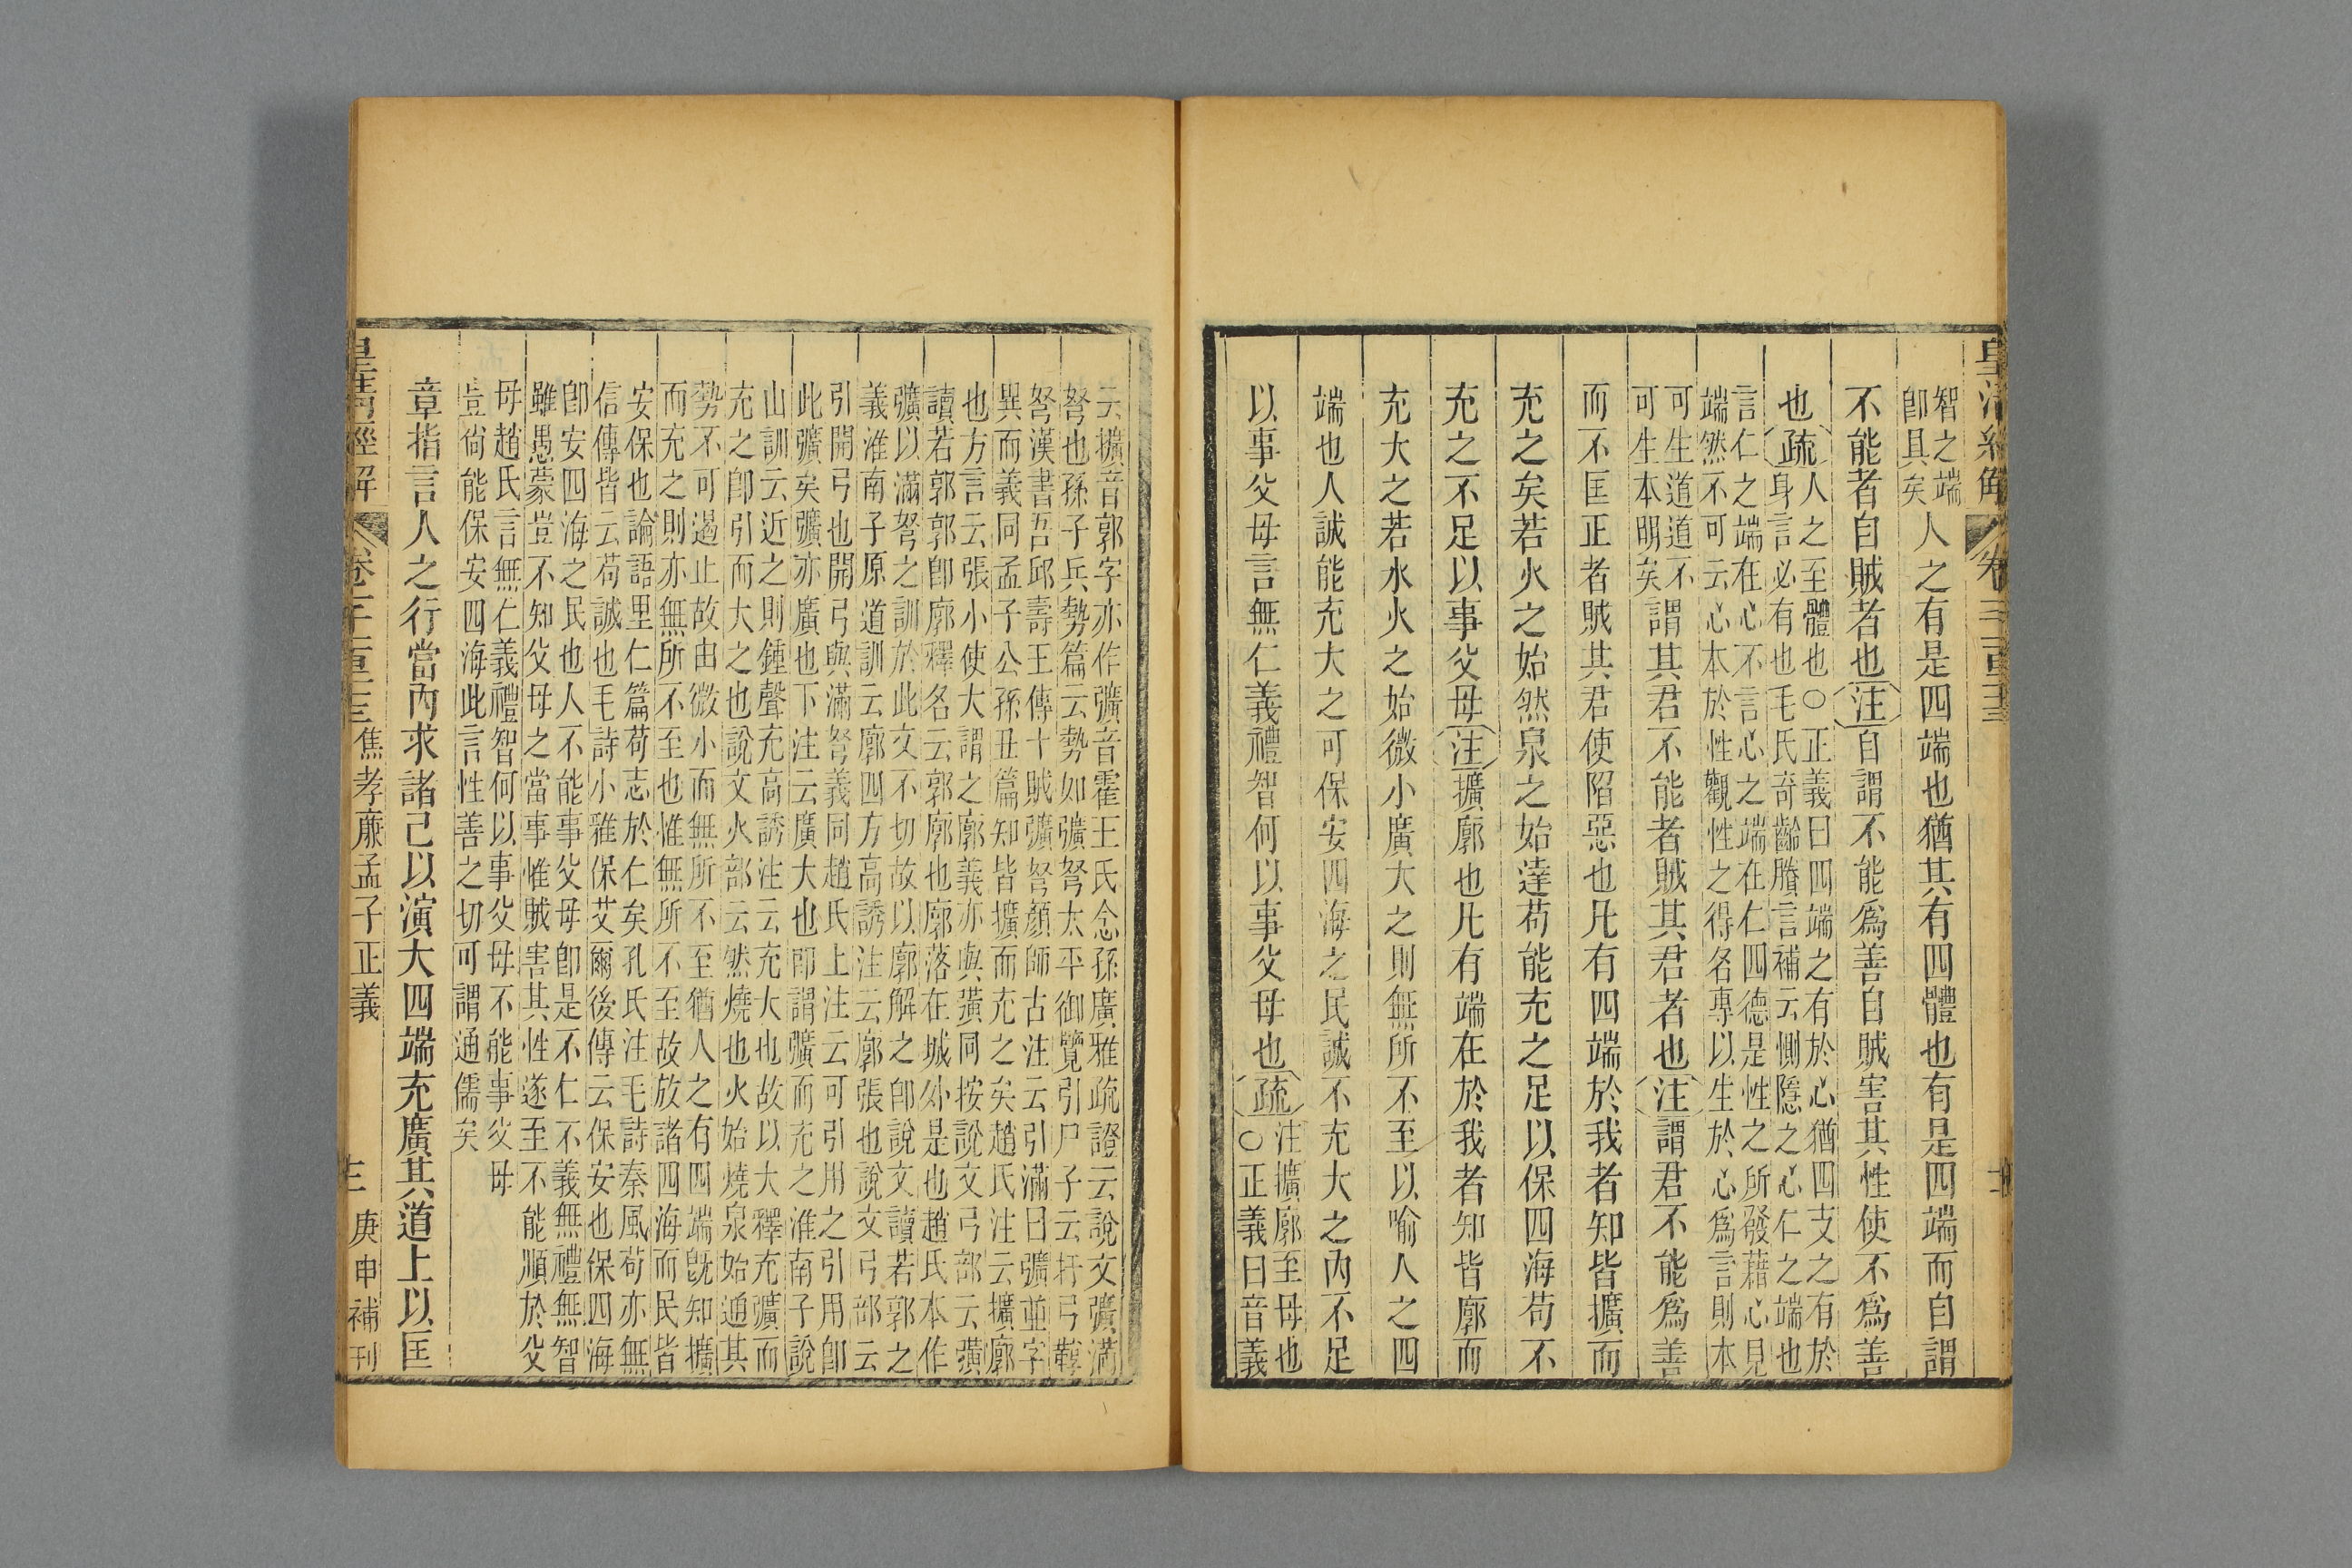 皇清經解 卷千一百十三
智之端
即具矣
人之有是四端也猶其有四體也有是四端而自謂
不能者自賊者也注自謂不能爲善自賊害其性使不爲善
也疏
人之至體也○正義曰四端之有於心猶四支之有於
身言必有也毛氏奇齡賸言補云惻隱之心仁之端也
言仁之端在心不言心之端在仁四德是性之所發藉心見
端然不可云心本於性觀性之得名專以生於心爲言則本
可生道道不
可生本明矣
謂其君不能者賊其君者也注謂君不能爲善
而不匡正者賊其君使陷惡也凡有四端於我者知皆擴而
充之矣若火之始然泉之始達苟能充之足以保四海苟不
充之不足以事父母注擴廓也凡有端在於我者知皆廓而
充大之若水火之始微小廣大之則無所不至以喻人之四
端也人誠能充大之可保安四海之民誠不充大之內不足
以事父母言無仁義禮智何以事父母也疏
注擴廓至母也
○正義曰音義
云擴音郭字亦作彉音霍王氏念孫廣雅疏證云說文彉滿
弩也孫子兵勢篇云勢如彉弩太平御覽引尸子云扜弓鞟
弩漢書吾邱壽王傳十賊彉弩顏師古注云引滿曰彉並字
異而義同孟子公孫丑篇知皆擴而充之矣趙氏注云擴廓
也方言云張小使大謂之廓義亦與彉同按說文弓部云彉
讀若郭郭即廓釋名云郭廓也廓落在城外是也趙氏本作
彉以滿弩之訓於此文不切故以廓解之即說文讀若郭之
義淮南子原道訓云廓四方高誘注云廓張也說文弓部云
引開弓也開弓與滿弩義同趙氏上注云可引用之引用即
此彉矣彉亦廣也下注云廣大也即謂彉而充之淮南子說
山訓云近之則鍾聲充高誘注云充大也故以大釋充彉而
充之即引而大之也說文火部云然燒也火始燒泉始通其
勢不可遏止故由微小而無所不至猶人之有四端旣知擴
而充之則亦無所不至也惟無所不至故放諸四海而民皆
安保也論語里仁篇苟志於仁矣孔氏注毛詩秦風苟亦無
信傳皆云苟誠也毛詩小雅保艾爾後傳云保安也保四海
即安四海之民也人不能事父母即是不仁不義無禮無智
雖愚蒙豈不知父母之當事惟賊害其性遂至不能順於父
母趙氏言無仁義禮智何以事父母不能事父母
豈尙能保安四海此言性善之切可謂通儒矣
章指言人之行當內求諸己以演大四端充廣其道上以匡
皇清經解 卷千一百十三 焦孝廉孟子正義 庚申補刊